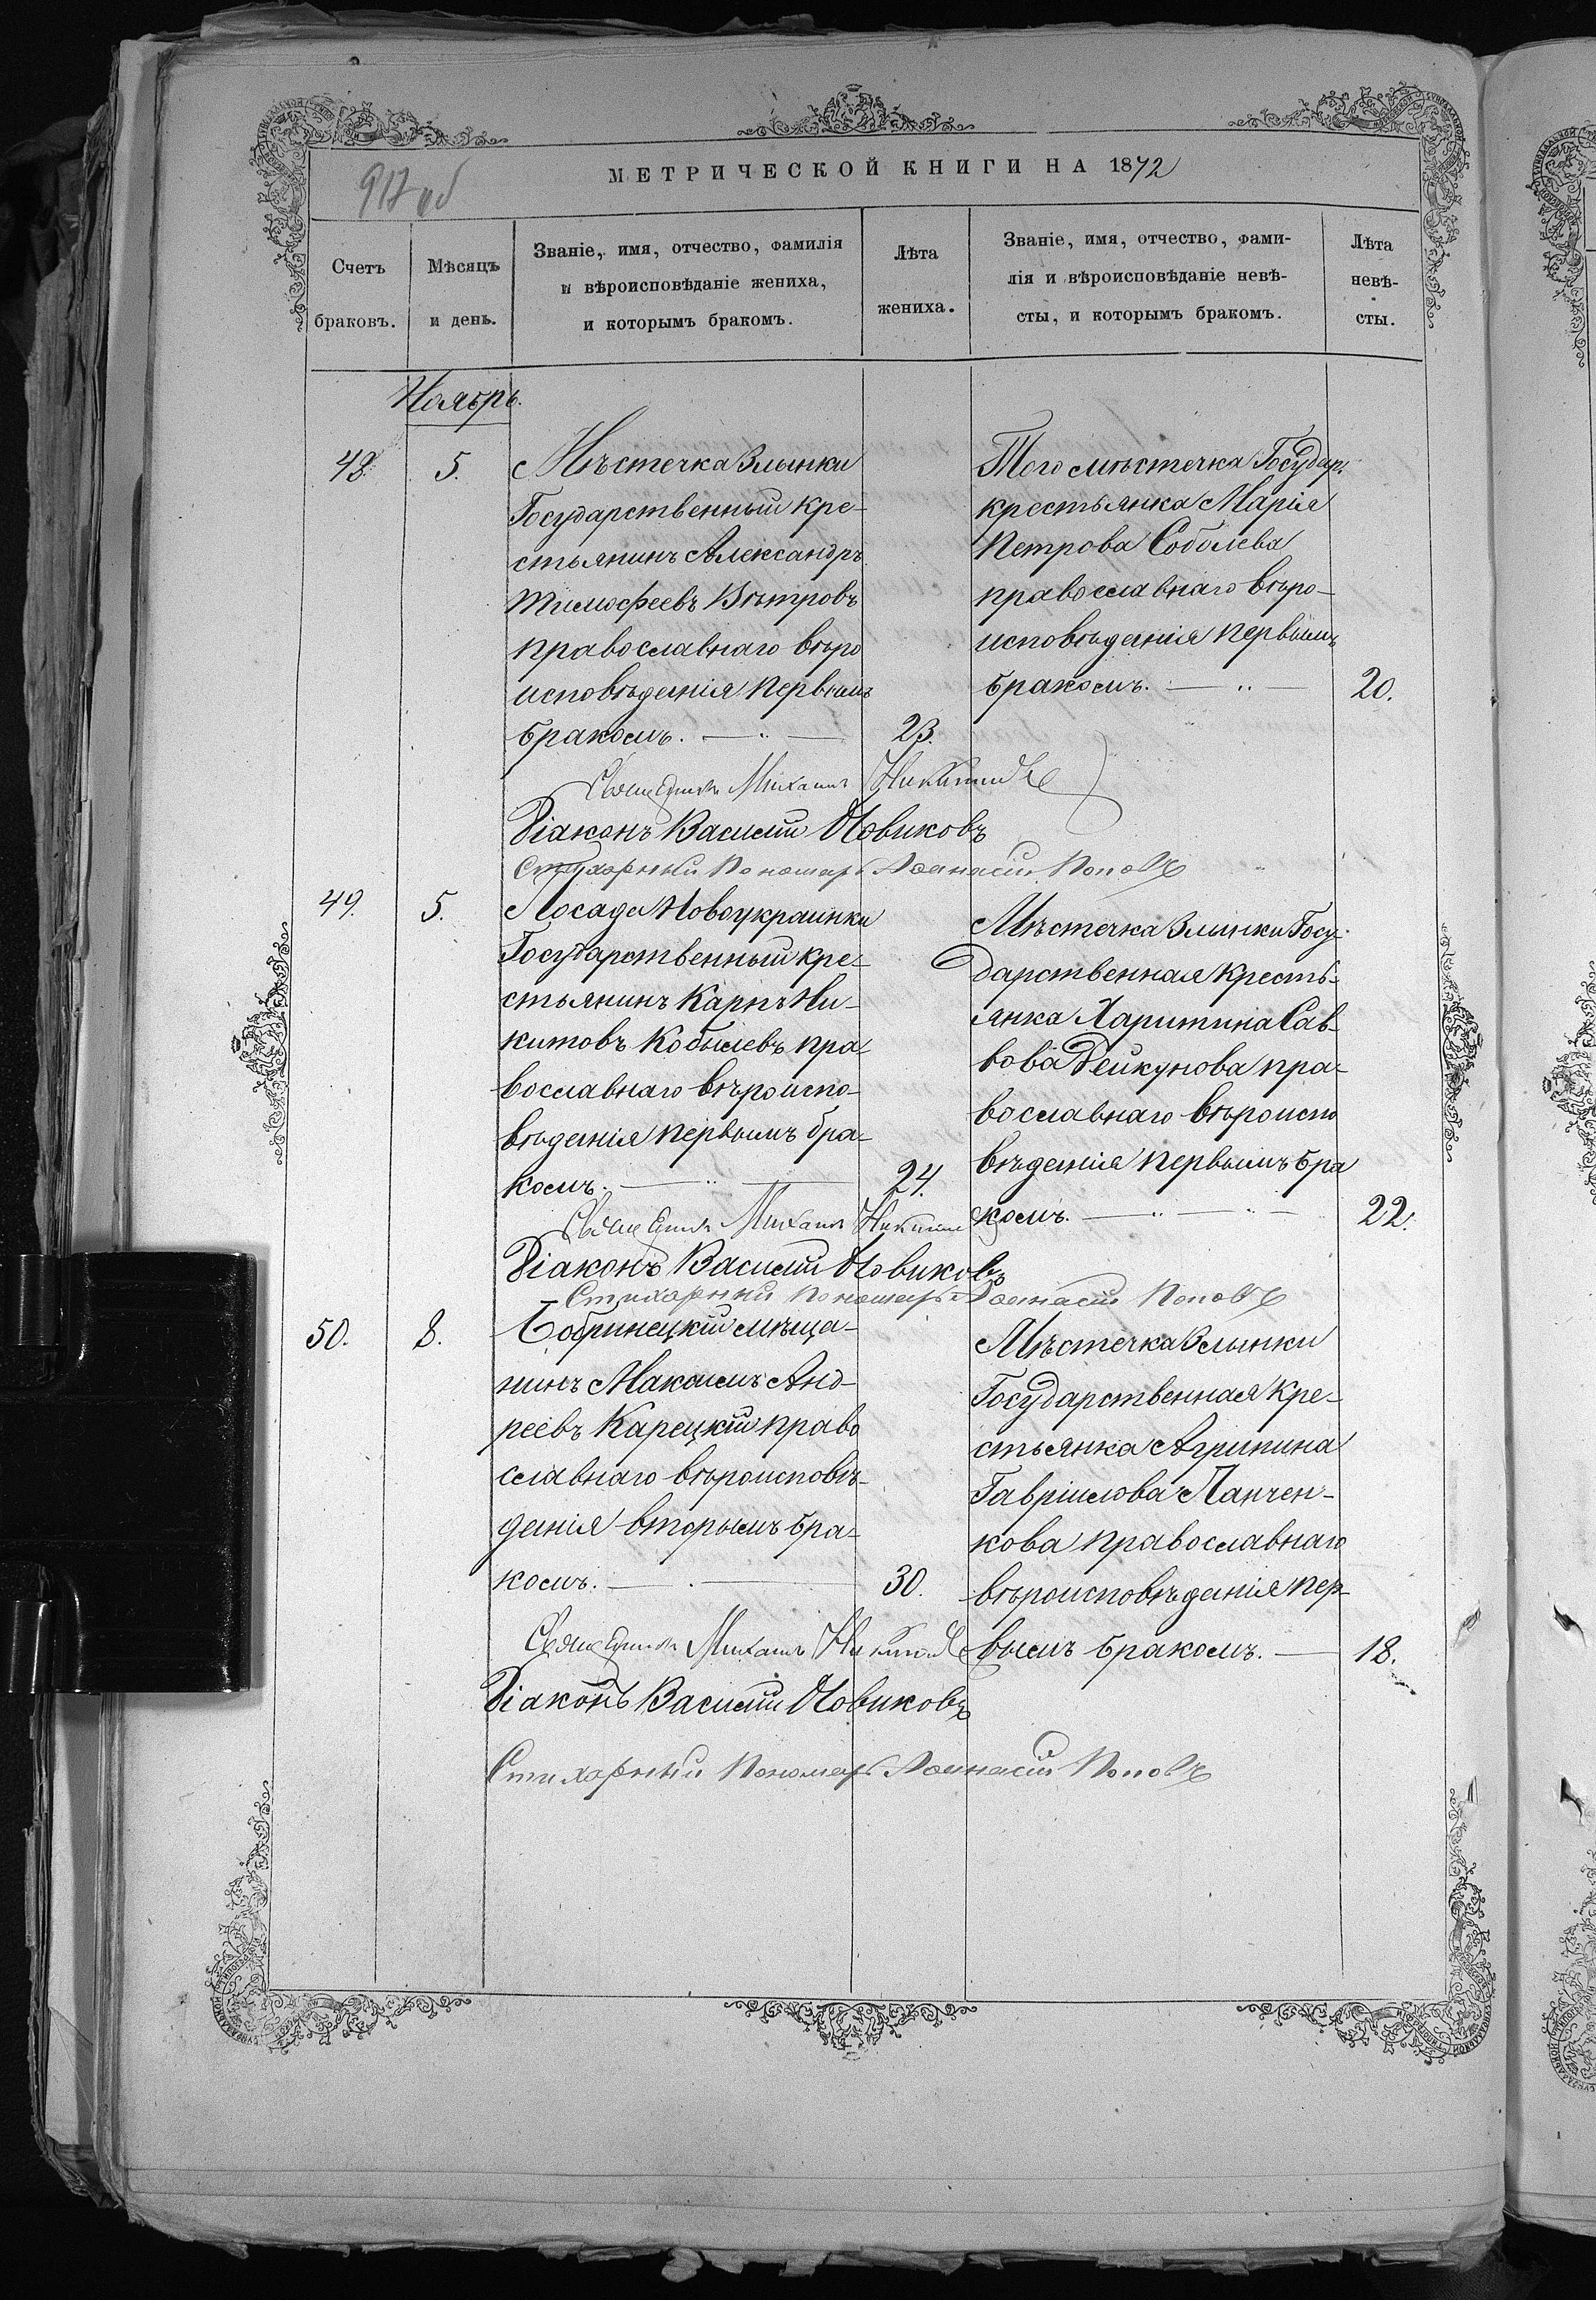 917 об
МЕТРИЧЕСКОЙ КНИГИ НА 1872
Счетъ
браковъ.
Мѣсяцъ
и день.
Званіе, имя, отчество, фамилія
и вѣроисповѣданіе жениха,
и которымъ бракомъ.
Лѣта
жениха.
Званіе, имя, отчество, фами-
лія и вѣроисповѣданіе невѣ-
сты, и которымъ бракомъ.
Лѣта
невѣ-
сты.
Ноябрь.
48
5.
Мѣстечка Злынки
Государственный кре-
стьянинъ Александръ
Тимофеевъ Вѣтровъ
православнаго вѣро
исповѣданія первымъ
бракомъ.
23.
Того мѣстечка Государ.
крестьянка Марія
Петрова Соболева
православнаго вѣро-
исповѣданія первымъ
бракомъ.
20.
Священникъ Михаилъ
Діаконъ Василій Новиковъ
Стихарный Пономарь Афанасій Поповъ
49.
5.
Посада Новоукраинки
Государственный кре-
стьянинъ Карпъ Ни-
китовъ Кобылевъ пра-
вославнаго вѣроиспо-
вѣданія первымъ бра-
комъ.
24.
Мѣстечка Злынки Госу-
дарственная кресть-
янка Харитина Сав-
вова Дейкунова пра-
вославнаго вѣроиспо
вѣданія первымъ бра
комъ.
22.
Священникъ Михаилъ
Діаконъ Василій Новиковъ
Стихарный Пономарь Афанасій Поповъ
50.
8.
Бобринецкій мѣща-
нинъ Максимъ Анд-
реевъ Карецкій право
славнаго вѣроисповѣ-
данія вторымъ бра-
комъ.
30.
Мѣстечка Злынки
Государственная кре-
стьянка Агрипина
Гавріилова Панчен-
кова православнаго
вѣроисповѣданія пер-
вымъ бракомъ.
18.
Священникъ Михаилъ
Діаконъ Василій Новиковъ
Стихарный Пономарь Афанасій Поповъ